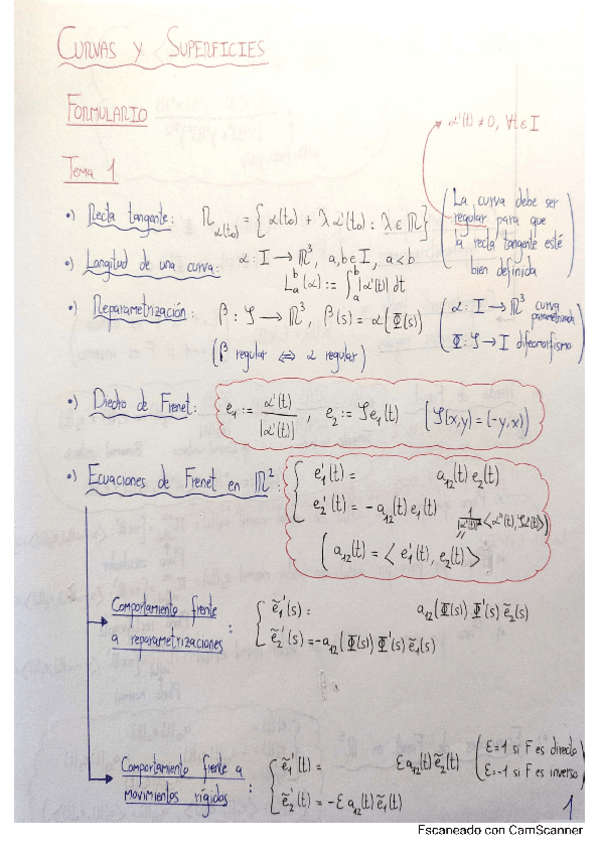 CURVAS Y SUPERFICIES
FORMULARIO
α'(t) ≠ 0, ∀t ∈ I
Tema 1
•) Recta tangente: R_{α(t₀)} = { α(t₀) + λ α'(t₀) : λ ∈ ℝ }
( La curva debe ser regular para que la recta tangente esté bien definida )
•) Longitud de una curva: α : I → ℝ³, a,b ∈ I, a < b
L_a^b (α) := ∫_a^b |α'(t)| dt
•) Reparametrización: β : J → ℝ³, β(s) = α(Φ(s))
( α : I → ℝ³ curva parametrizada
Φ : J → I difeomorfismo )
(β regular ⇔ α regular)
•) Diedro de Frenet: e₁ := α'(t) / |α'(t)| , e₂ := J e₁(t) ( J(x,y) = (-y,x) )
•) Ecuaciones de Frenet en ℝ²: { e₁'(t) = a₁₂(t) e₂(t)
e₂'(t) = - a₁₂(t) e₁(t)
1/|α'(t)|² <α''(t), Jα'(t)>
( a₁₂(t) = < e₁'(t), e₂(t) > )
Comportamiento frente a reparametrizaciones : { ẽ₁'(s) = a₁₂(Φ(s)) Φ'(s) ẽ₂(s)
ẽ₂'(s) = -a₁₂(Φ(s)) Φ'(s) ẽ₁(s)
Comportamiento frente a movimientos rígidos : { ẽ₁'(t) = ε a₁₂(t) ẽ₂(t)
ẽ₂'(t) = -ε a₁₂(t) ẽ₁(t)
( ε=1 si F es directo
ε=-1 si F es inverso )
1
Escaneado con CamScanner